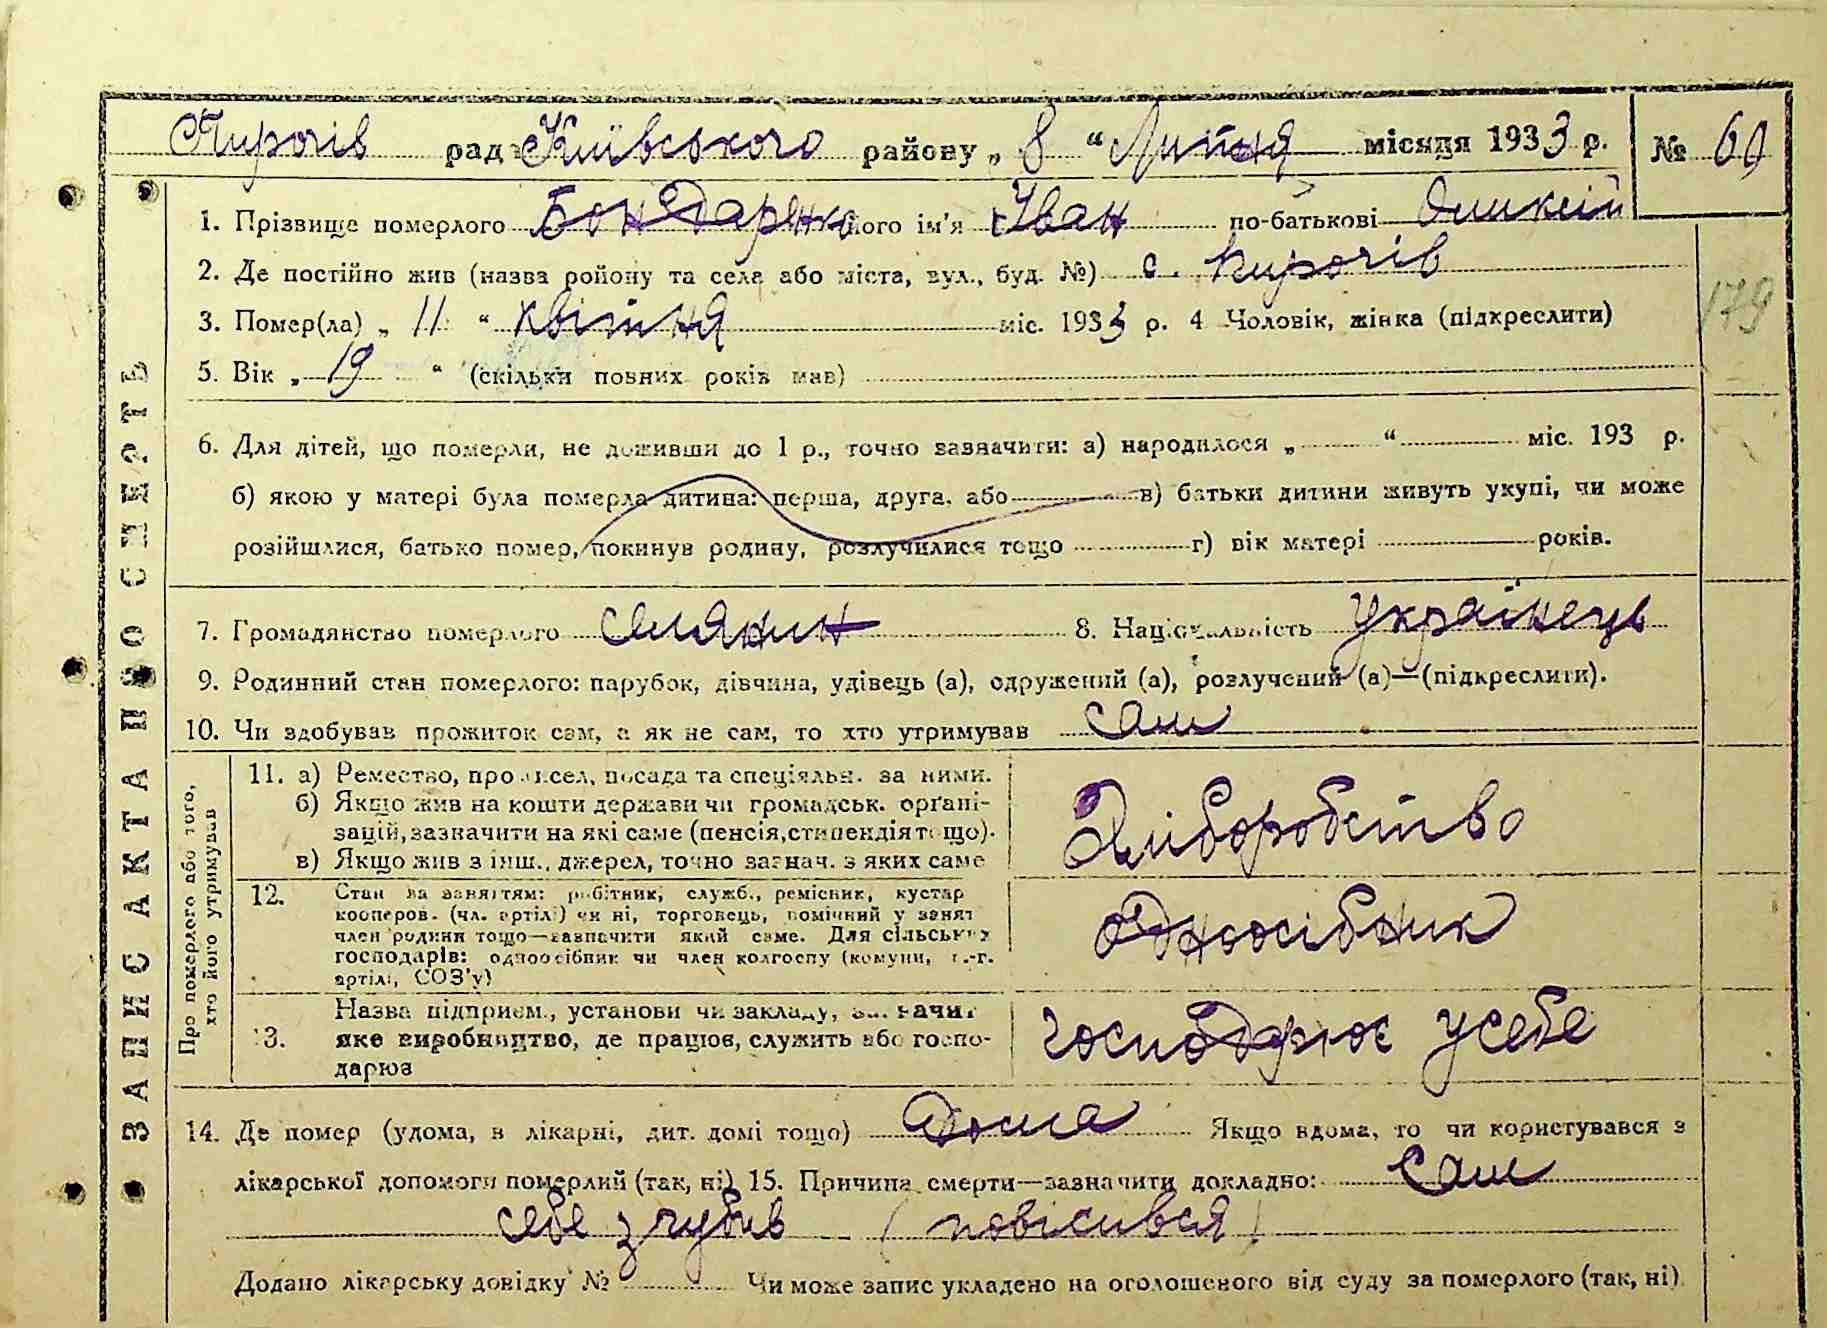 Пирогів рада Київського району „ 8 “ Липня місяця 1933 р. № 60
1. Прізвище померлого Бондаренко його ім'я Іван по-батькові Оликсій
2. Де постійно жив (назва ройону та села або міста, вул., буд. №) с. Пирогів
179
3. Помер(ла) „ 11 “ квітня міс. 1933 р. 4 Чоловік, жінка (підкреслити)
5. Вік „ 19 “ (скільки повних років мав)
6. Для дітей, що померли, не доживши до 1 р., точно зазначити: а) народилося „ “ міс. 193 р.
б) якою у матері була померла дитина: перша, друга, або в) батьки дитини живуть укупі, чи може
розійшлися, батько помер, покинув родину, розлучилися тощо г) вік матері років.
7. Громадянство померлого селянин 8. Національність Українець
9. Родинний стан померлого: парубок, дівчина, удівець (а), одружений (а), розлучений (а)—(підкреслити).
10. Чи здобував прожиток сам, а як не сам, то хто утримував сам
ЗАПИС АКТА ПРО СМЕРТЬ
Про померлого або того,
хто його утримував
11. а) Ремество, промисел, посада та спеціяльн. за ними.
б) Якщо жив на кошти держави чи громадськ. орґані-
зацій, зазначити на які саме (пенсія, стипендія тощо).
в) Якщо жив з інш., джерел, точно зазнач. з яких саме
Хліборобство
12. Стан за заняттям: робітник, служб., ремісник, кустар
кооперов. (чл. артілі) чи ні, торговець, помічний у занят
член родини тощо—зазначити який саме. Для сільських
господарів: одноосібник чи член колгоспу (комуни, с.-г.
артілі, СОЗ'у)
одноосібник
13. Назва підприєм., установи чи закладу, зазначит
яке виробництво, де працюв, служить або госпо-
дарює
господарює у себе
14. Де помер (удома, в лікарні, дит. домі тощо) Дома Якщо вдома, то чи користувався з
лікарської допомоги померлий (так, ні) 15. Причина смерти—зазначити докладно: Сам
себе згубив (повісився)
Додано лікарську довідку № Чи може запис укладено на оголошеного від суду за померлого (так, ні)